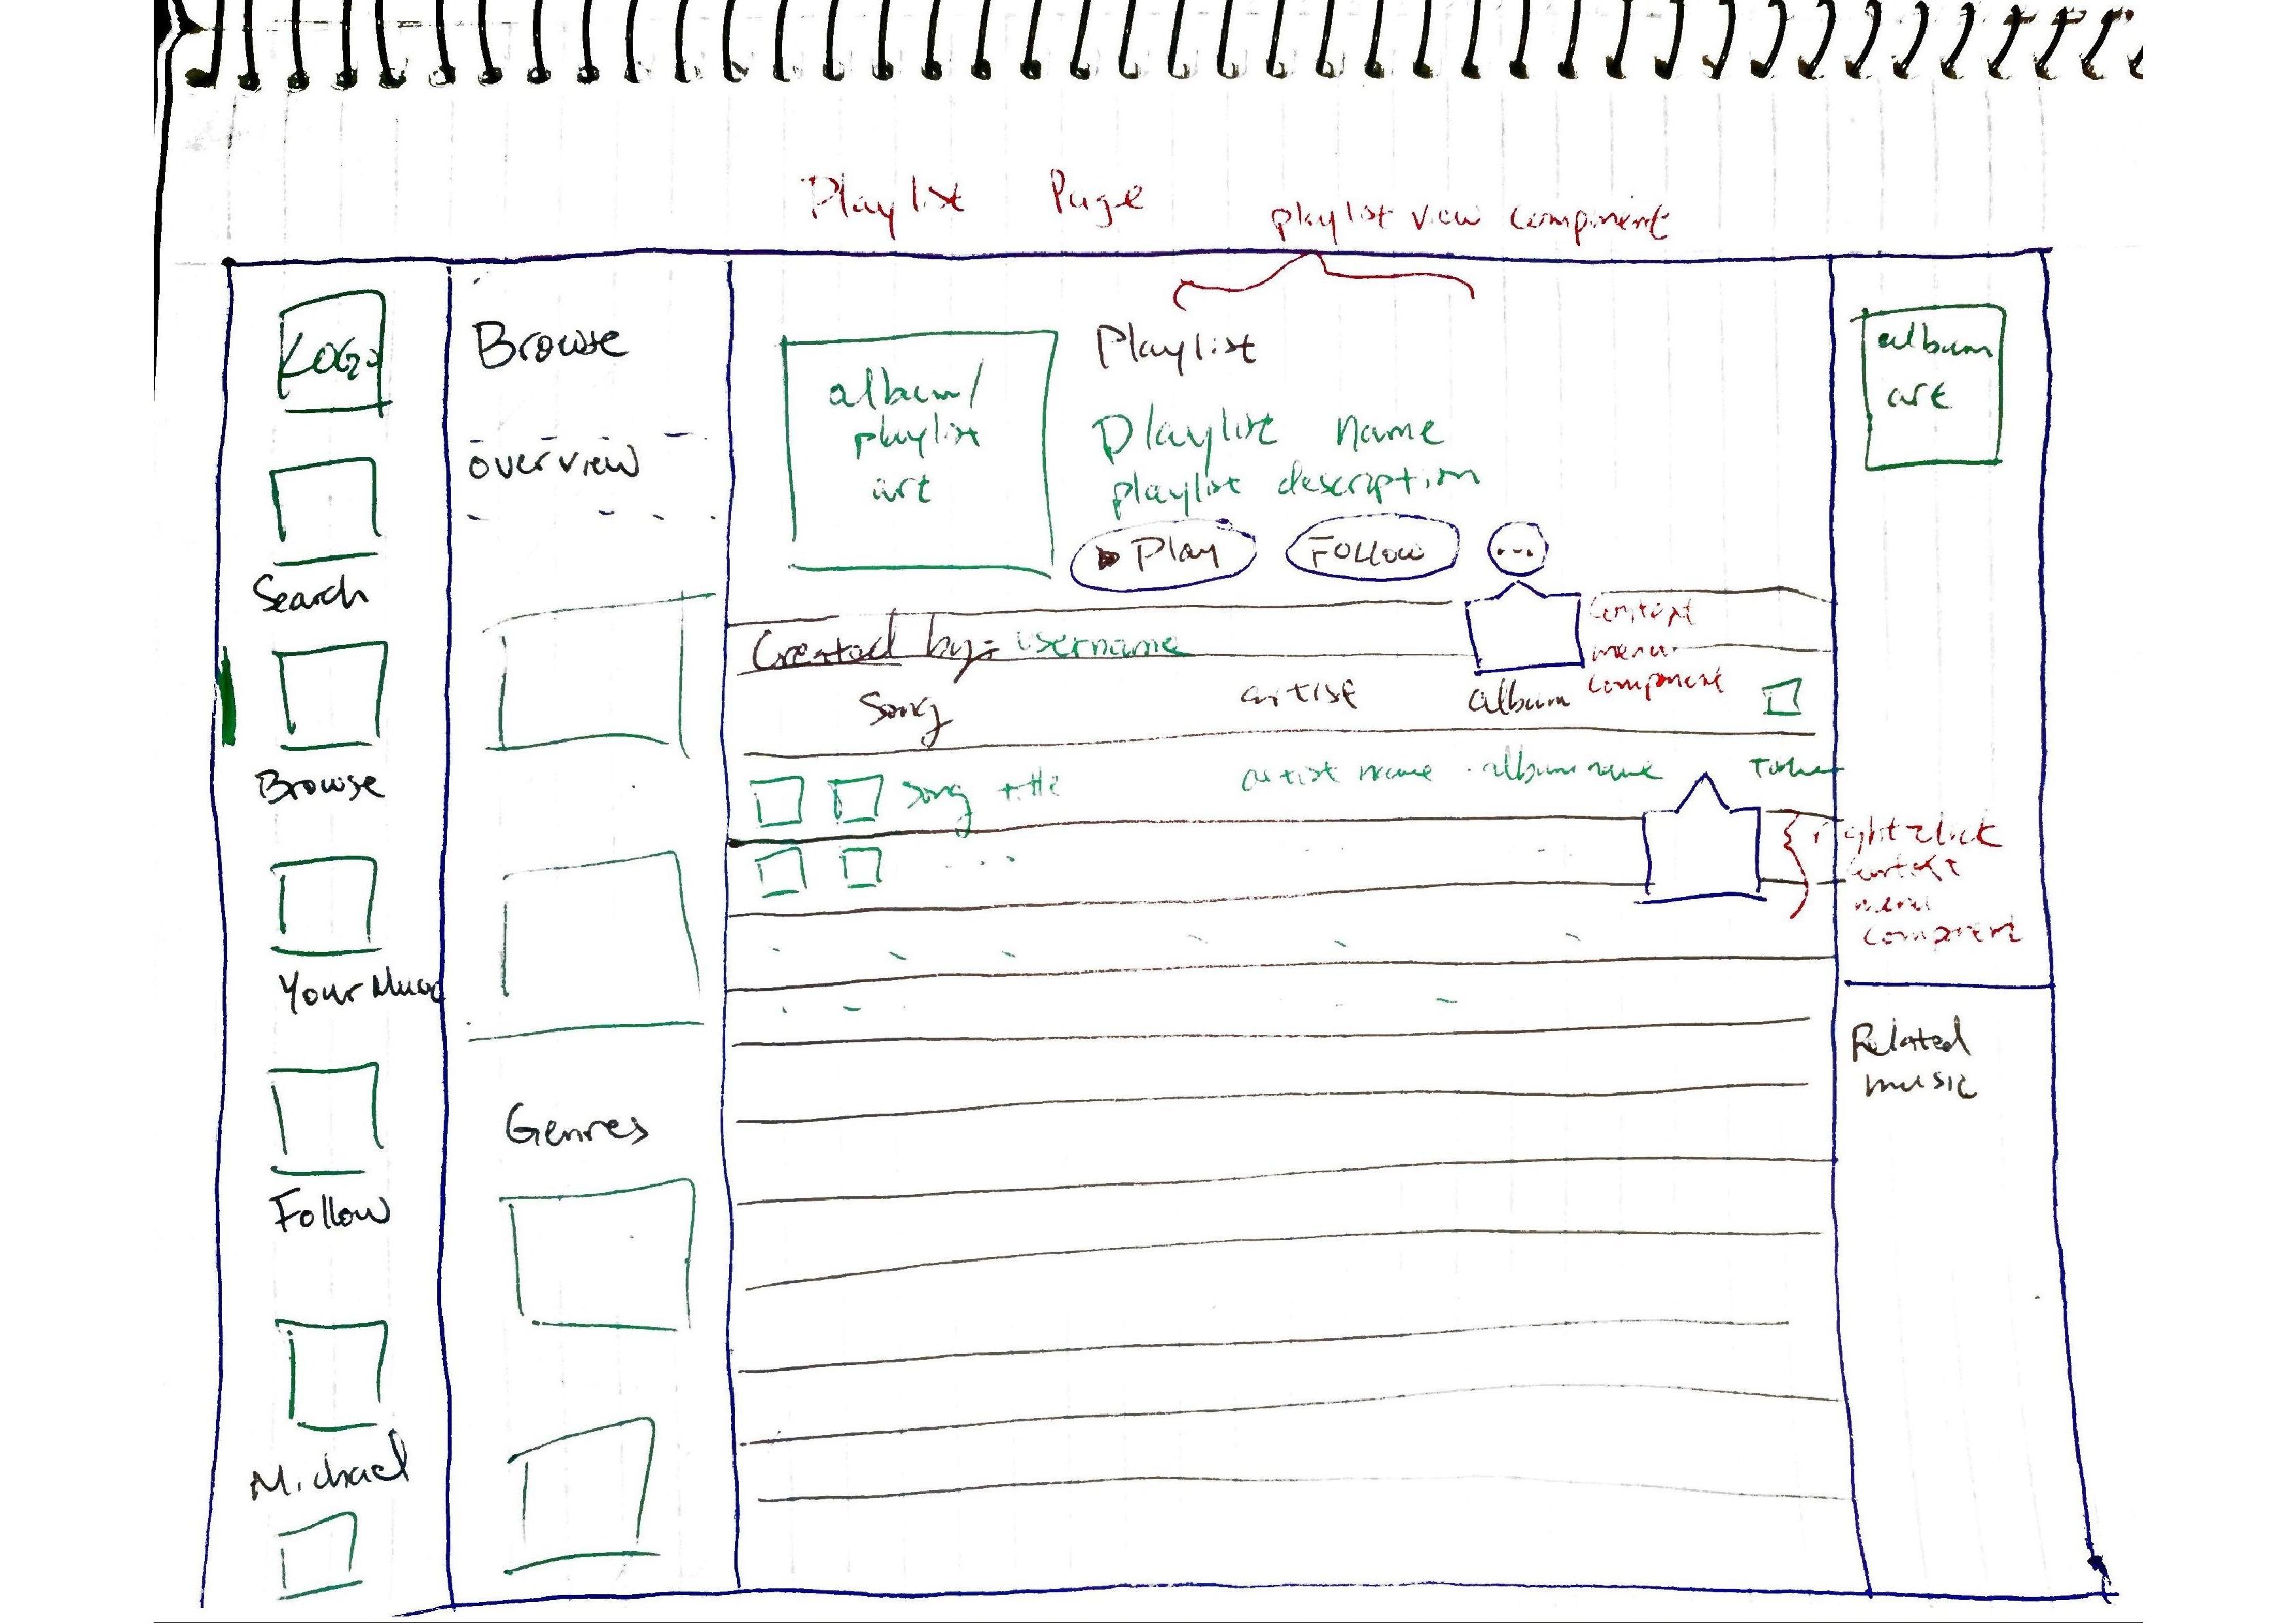 Playlist Page
playlist view component
LOGO
Search
Browse
Your Music
Follow
Michael
Browse
overview
Genres
album/
playlist
art
Playlist
Playlist name
playlist description
Play
Follow
...
Created by: username
context
menu
component
Song artist album
song title artist name album name
right click
context
menu
component
album
art
Related
music